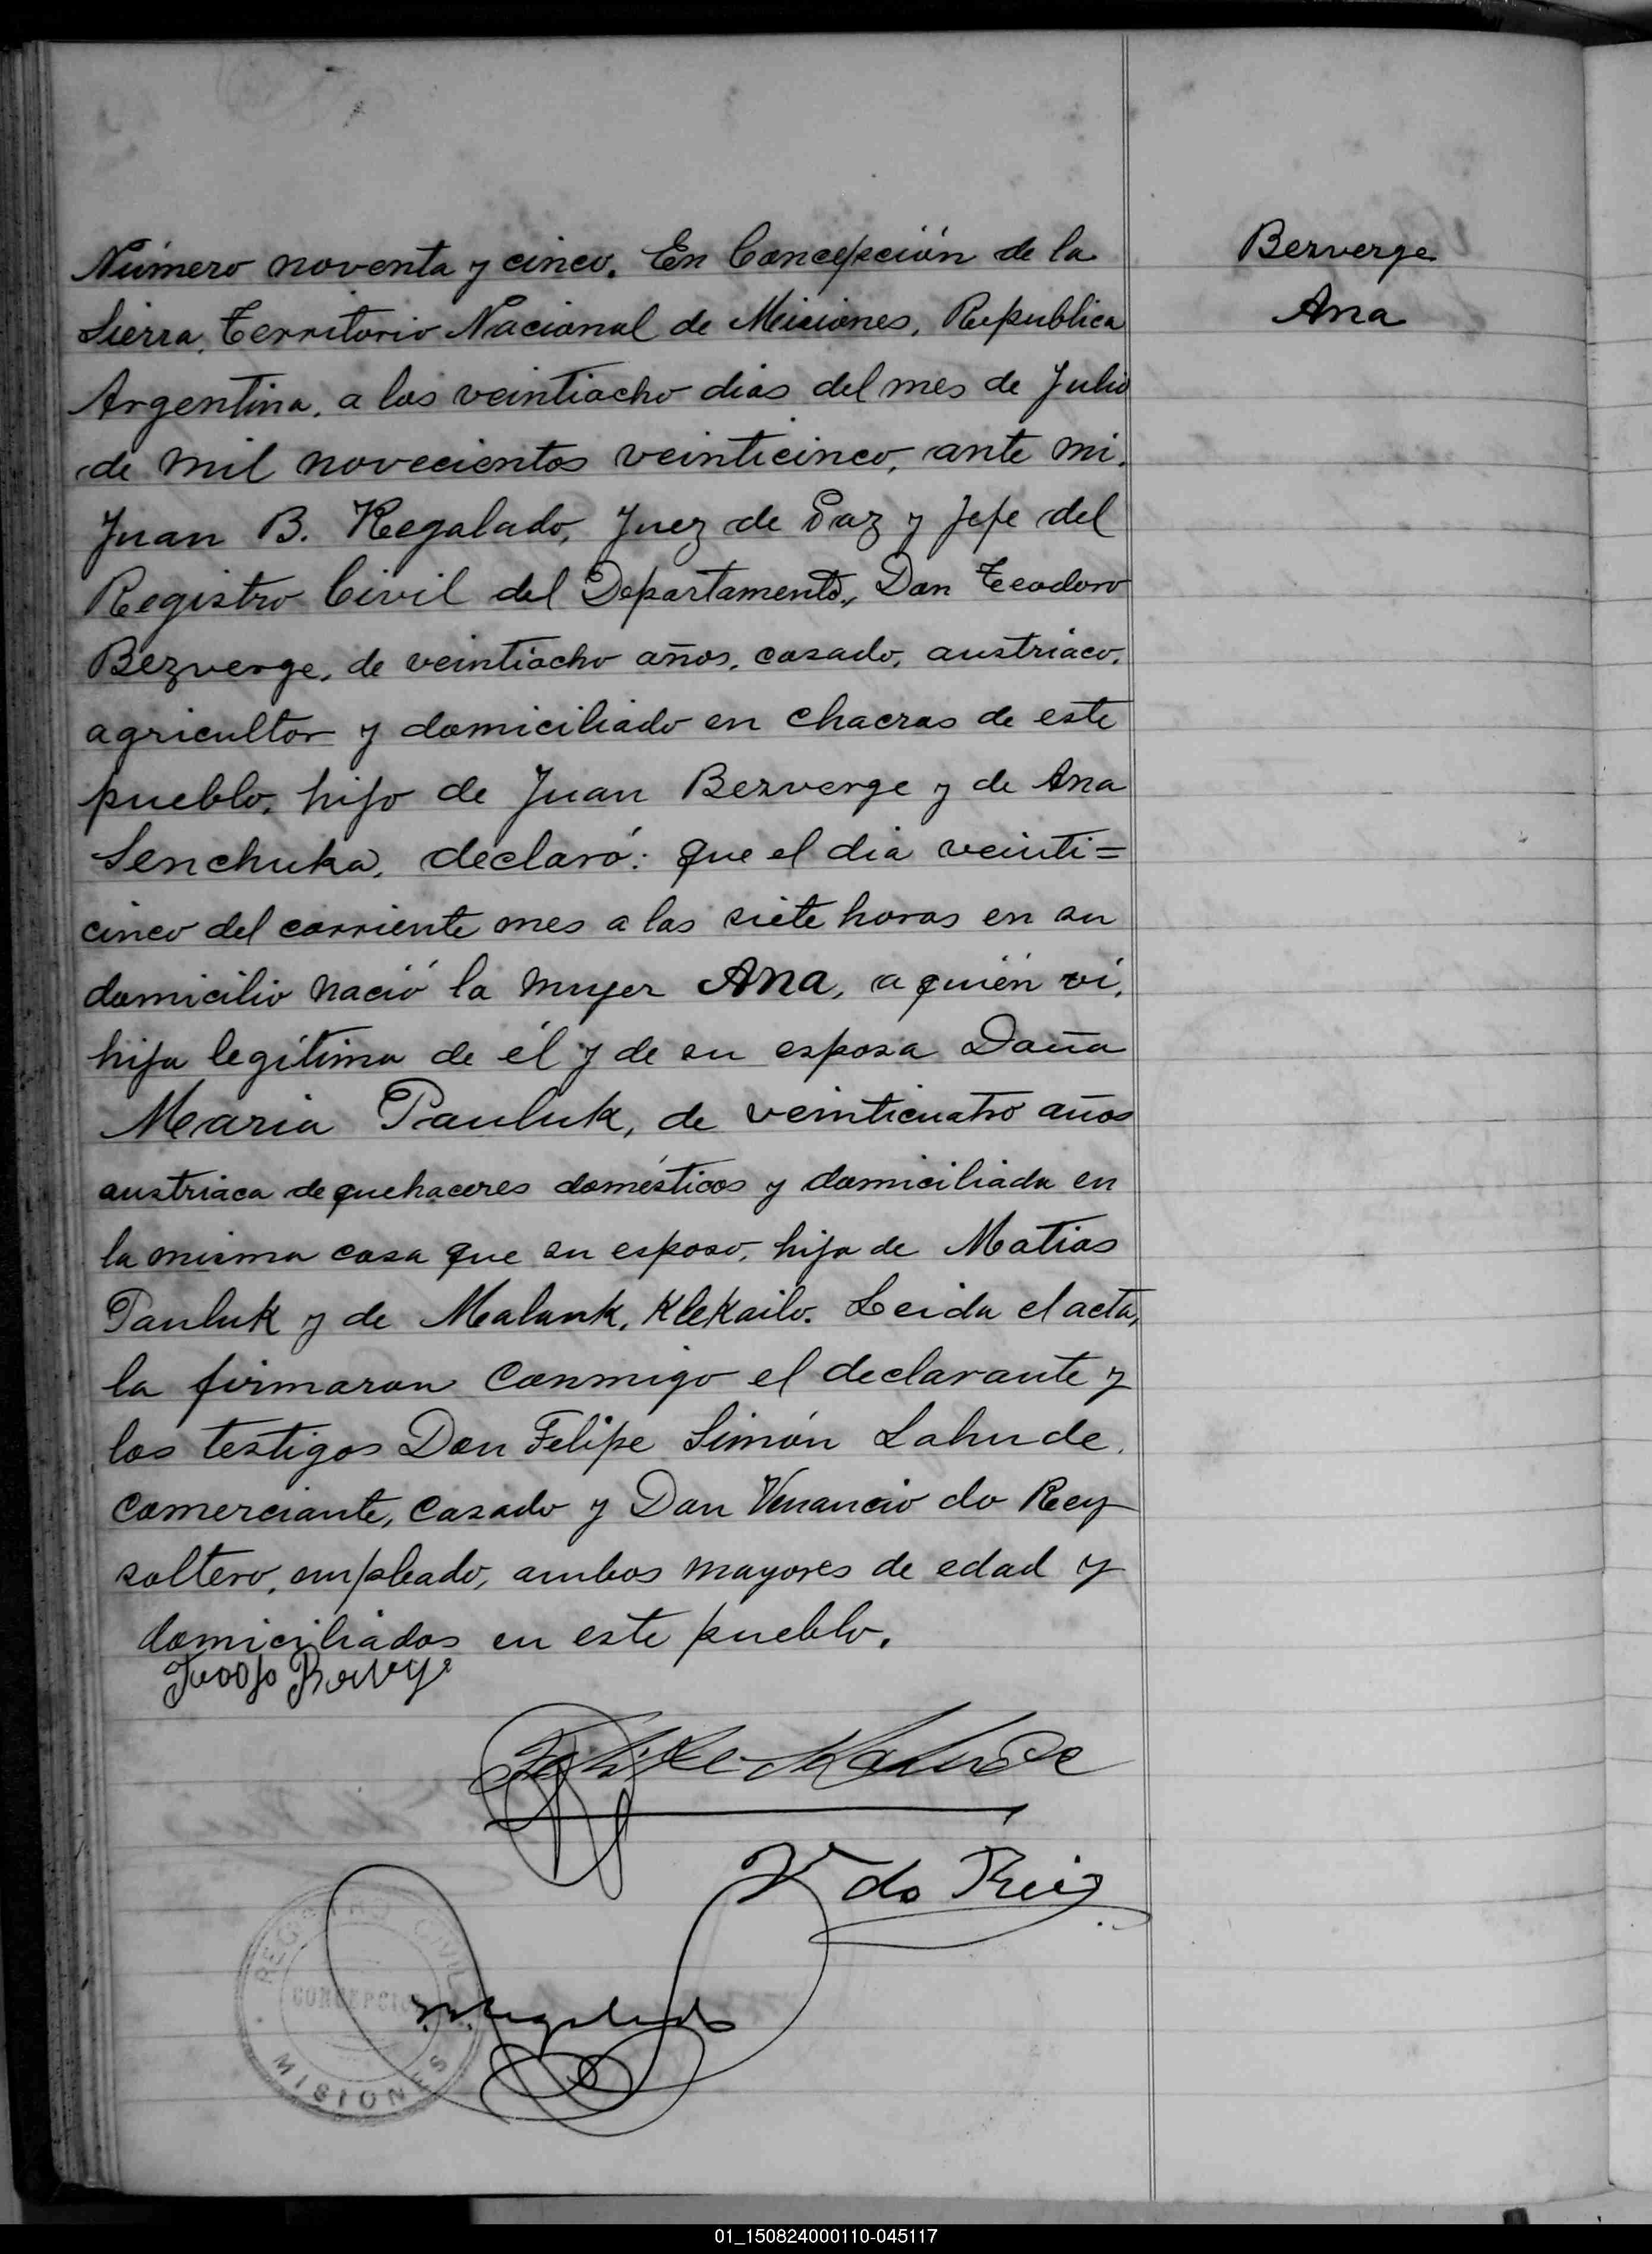 Número noventa y cinco. En Concepción de la
Sierra, Territorio Nacional de Misiones, Republica
Argentina, a los veintiocho dias del mes de Julio
de mil novecientos veinticinco, ante mi,
Juan B. Regalado, Juez de Paz y Jefe del
Registro Civil del Departamento, Don Teodoro
Bezverge, de veintiocho años, casado, austriaco,
agricultor y domiciliado en chacras de este
pueblo, hijo de Juan Bezverge y de Ana
Senchuka, declaró: que el dia veinti=
cinco del corriente mes a las siete horas en su
domicilio nació la mujer Ana, a quién vi,
hija legítima de él y de su esposa Doña
Maria Pauluk, de veinticuatro años
austriaca de quehaceres domésticos y domiciliada en
la misma casa que su esposo, hija de Matias
Pauluk y de Malank, Klekailo. Leida el acta,
la firmaron conmigo el declarante y
los testigos Don Felipe Simón Lahude,
comerciante, casado y Don Venancio do Rey
soltero, empleado, ambos mayores de edad y
domiciliados en este pueblo.
Bezverge
Ana
Felipe Lahude
V. do Reis
REGISTRO CIVIL
CONCEPCION
MISIONES
01_150824000110-045117